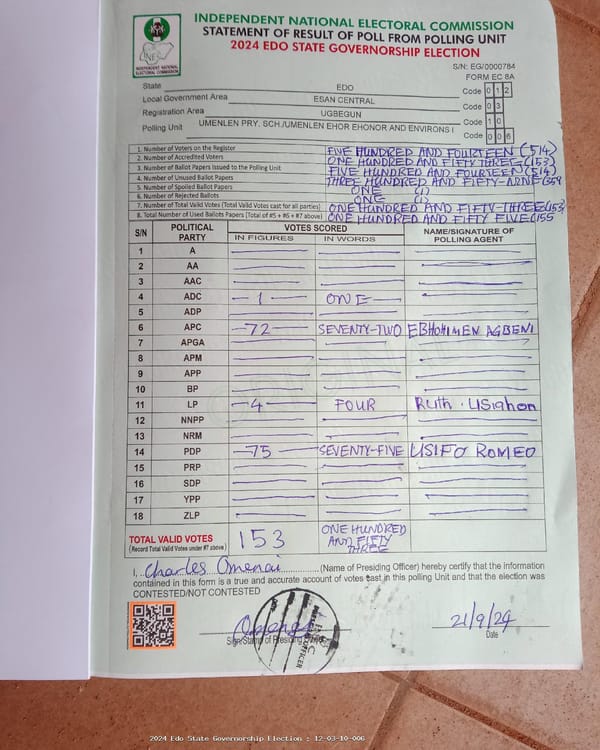 INDEPENDENT NATIONAL ELECTORAL COMMISSION
STATEMENT OF RESULT OF POLL FROM POLLING UNIT
2024 EDO STATE GOVERNORSHIP ELECTION
INEC
INDEPENDENT NATIONAL ELECTORAL COMMISSION
S/N: EG/0000784
FORM EC 8A
State EDO Code 0 1 2
Local Government Area ESAN CENTRAL Code 0 3
Registration Area UGBEGUN Code 1 0
Polling Unit UMENLEN PRY. SCH./UMENLEN EHOR EHONOR AND ENVIRONS I Code 0 0 6
1. Number of Voters on the Register FIVE HUNDRED AND FOURTEEN (514)
2. Number of Accredited Voters ONE HUNDRED AND FIFTY THREE (153)
3. Number of Ballot Papers Issued to the Polling Unit FIVE HUNDRED AND FOURTEEN (514)
4. Number of Unused Ballot Papers THREE HUNDRED AND FIFTY-NINE (359
5. Number of Spoiled Ballot Papers ONE (1)
6. Number of Rejected Ballots ONE (1)
7. Number of Total Valid Votes (Total Valid Votes cast for all parties) ONE HUNDRED AND FIFTY-THREE (153)
8. Total Number of Used Ballots Papers (Total of #5 + #6 + #7 above) ONE HUNDRED AND FIFTY FIVE (155
S/N POLITICAL PARTY VOTES SCORED NAME/SIGNATURE OF POLLING AGENT
IN FIGURES IN WORDS
1 A
2 AA
3 AAC
4 ADC 1 ONE
5 ADP
6 APC 72 SEVENTY-TWO EBHOHIMEN AGBENI
7 APGA
8 APM
9 APP
10 BP
11 LP 4 FOUR Ruth . Usiahon
12 NNPP
13 NRM
14 PDP 75 SEVENTY-FIVE USIFO ROMEO
15 PRP
16 SDP
17 YPP
18 ZLP
TOTAL VALID VOTES 153 ONE HUNDRED AND FIFTY THREE
(Record Total Valid Votes under #7 above)
I, Charles Omenai (Name of Presiding Officer) hereby certify that the information
contained in this form is a true and accurate account of votes cast in this polling Unit and that the election was
CONTESTED/NOT CONTESTED
21/9/24
Sign/Stamp of Presiding Date
2024 Edo State Governorship Election : 12-03-10-006